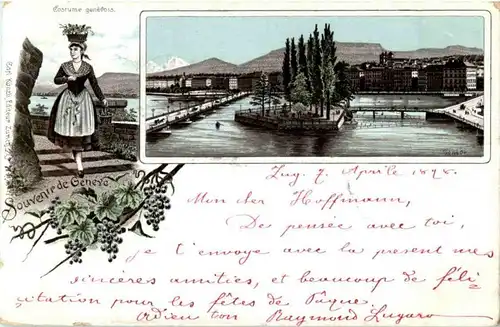 Costume genévois.
Souvenir de Genève
Zug. 7. Aprile 1898.
Mon cher Hoffmann,
De pensée avec toi,
je t'envoye avec la present mes
sincères amitiés, et beaucoup de féli-
citation pour les fêtes de Pâque.
Adieu ton Raymond Lugaro